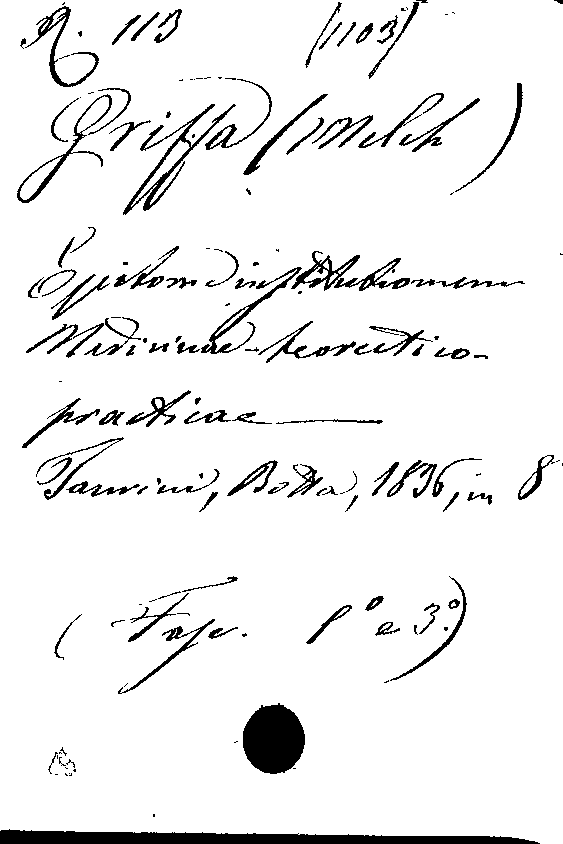 R. 113 (1103)
Griffa (Melch)
Epitome institutionum
Medicinae-teoretico-
practicae
Taurini, Botta, 1836, in 8°
(Fasc. 1° e 3°.)